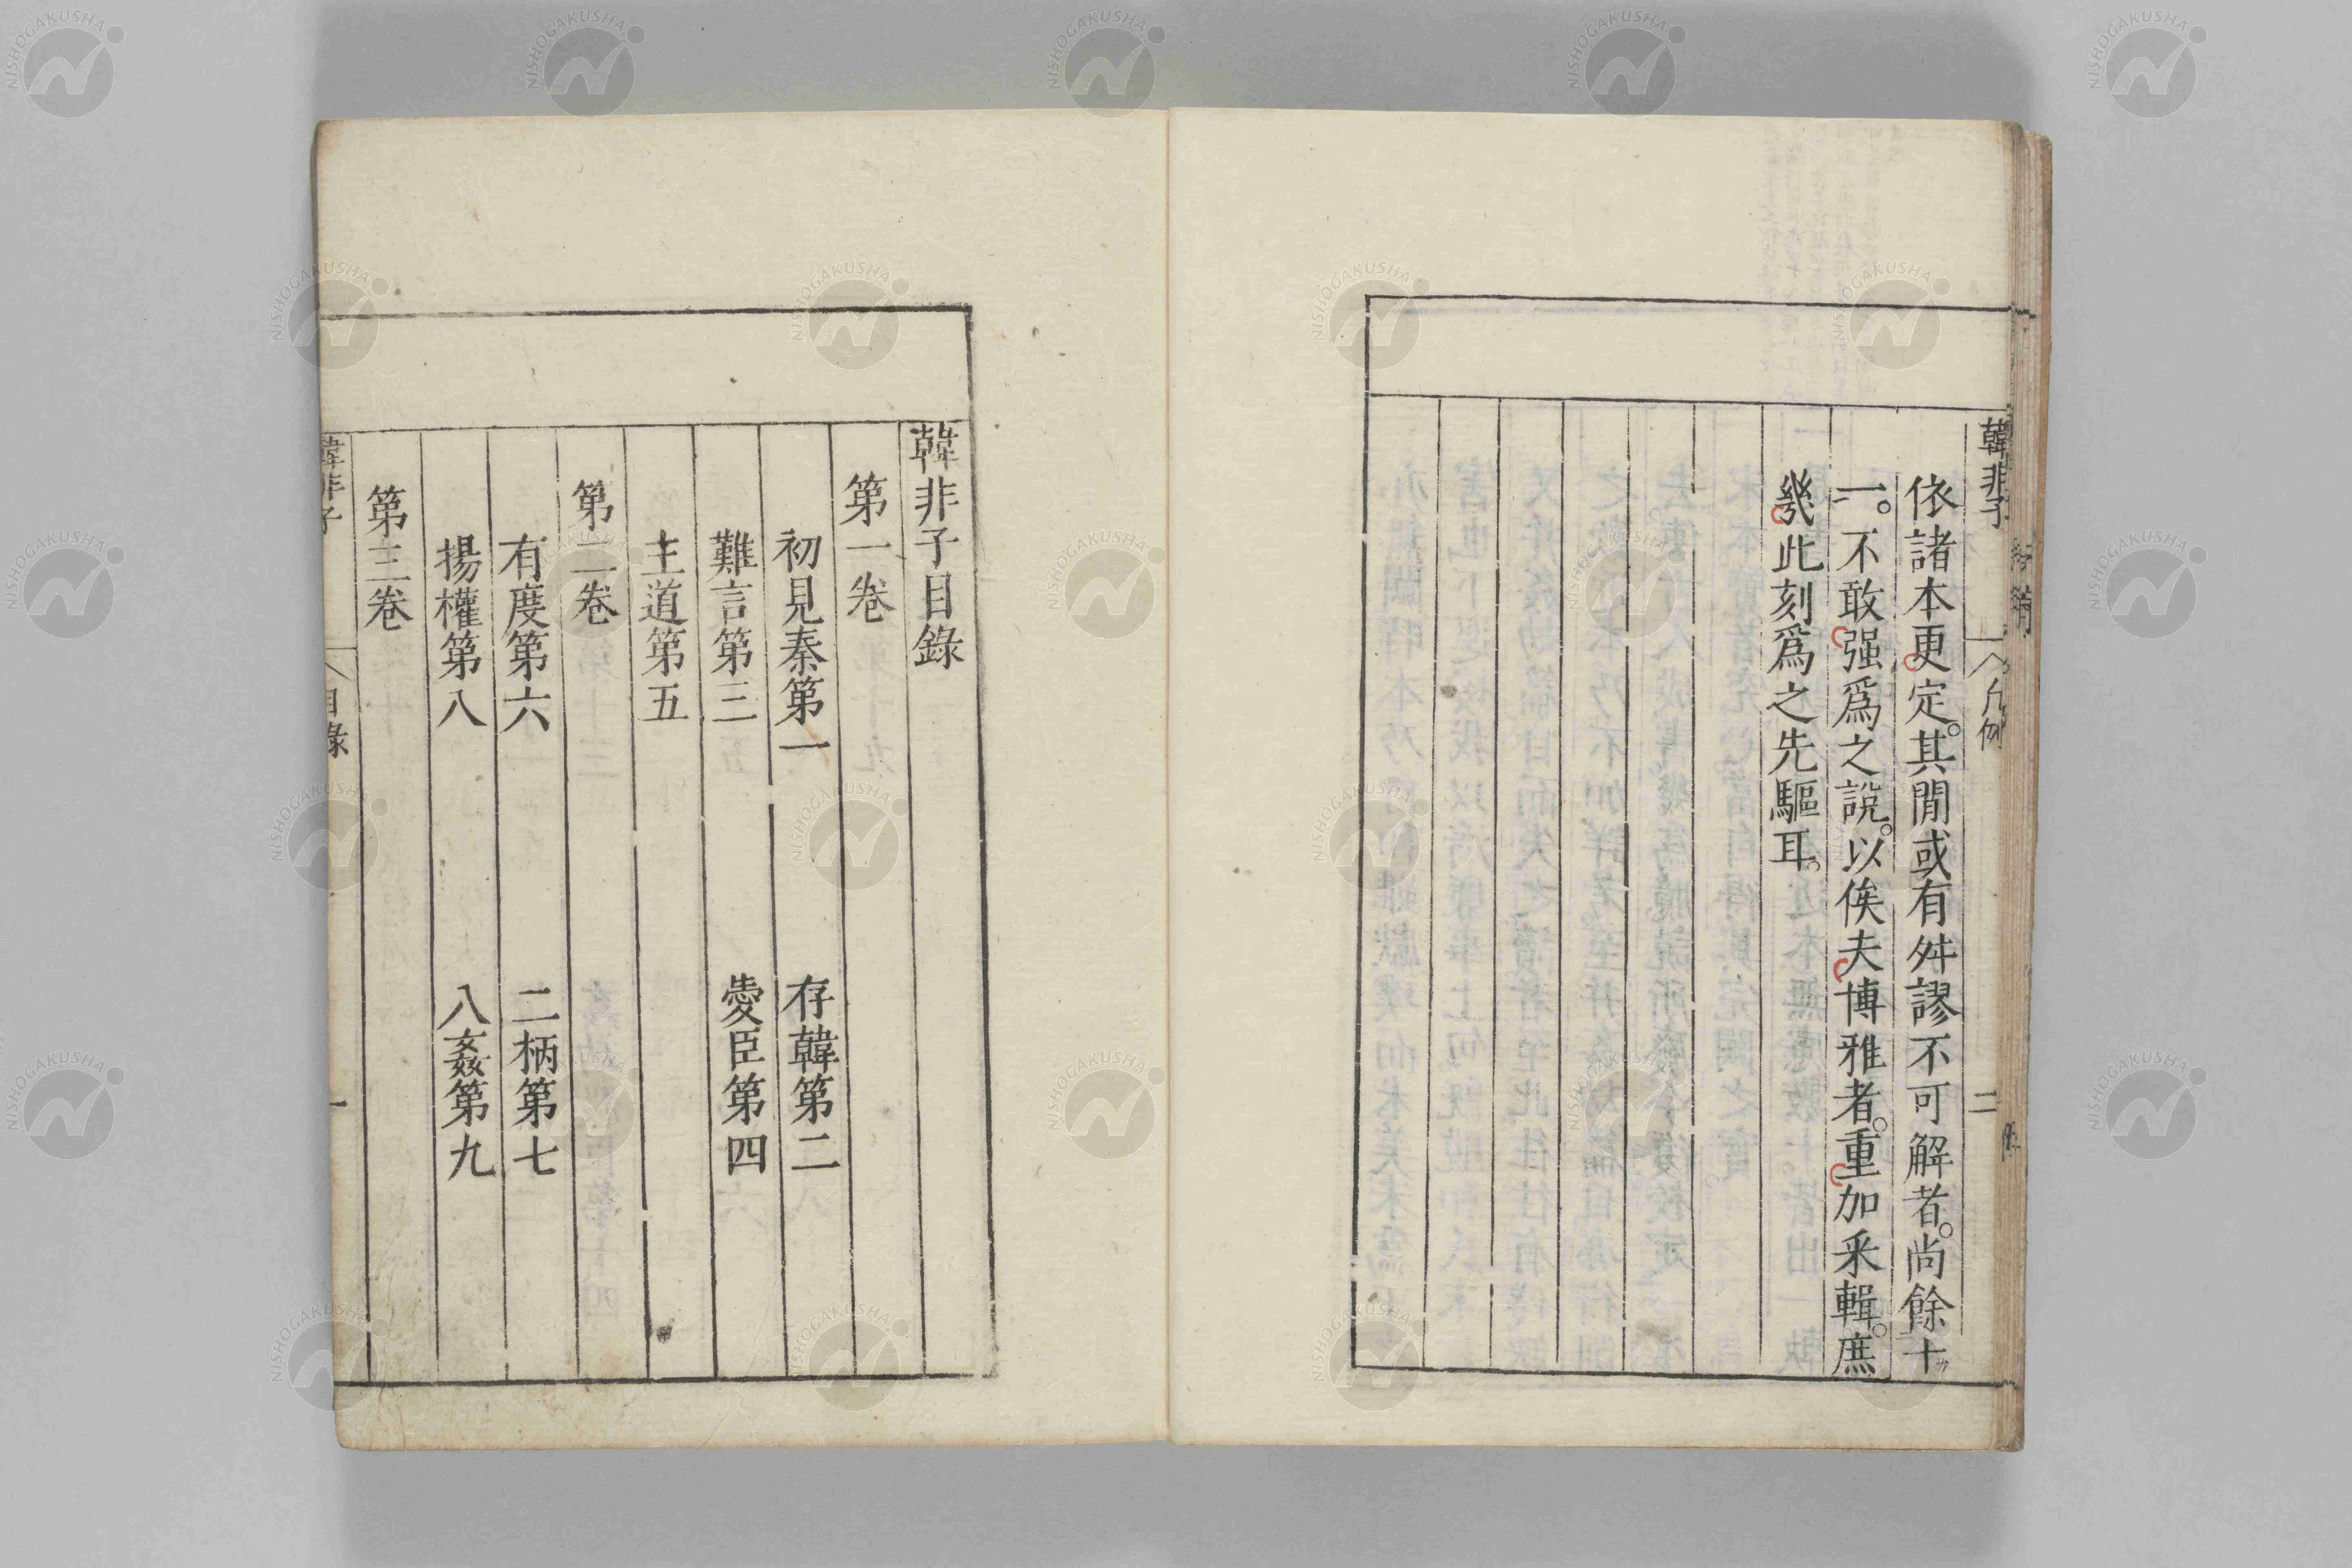 韓非子
凡例
二
依諸本更定。其閒或有舛謬不可解者。尚餘十
一。不敢强爲之說。以俟夫博雅者。重加采輯。庶
幾此刻爲之先驅耳。
韓非子目錄
第一卷
初見秦第一 存韓第二
難言第三 愛臣第四
主道第五
第二卷
有度第六 二柄第七
揚權第八 八姦第九
第三卷
韓非子
目錄
一
NISHOGAKUSHA